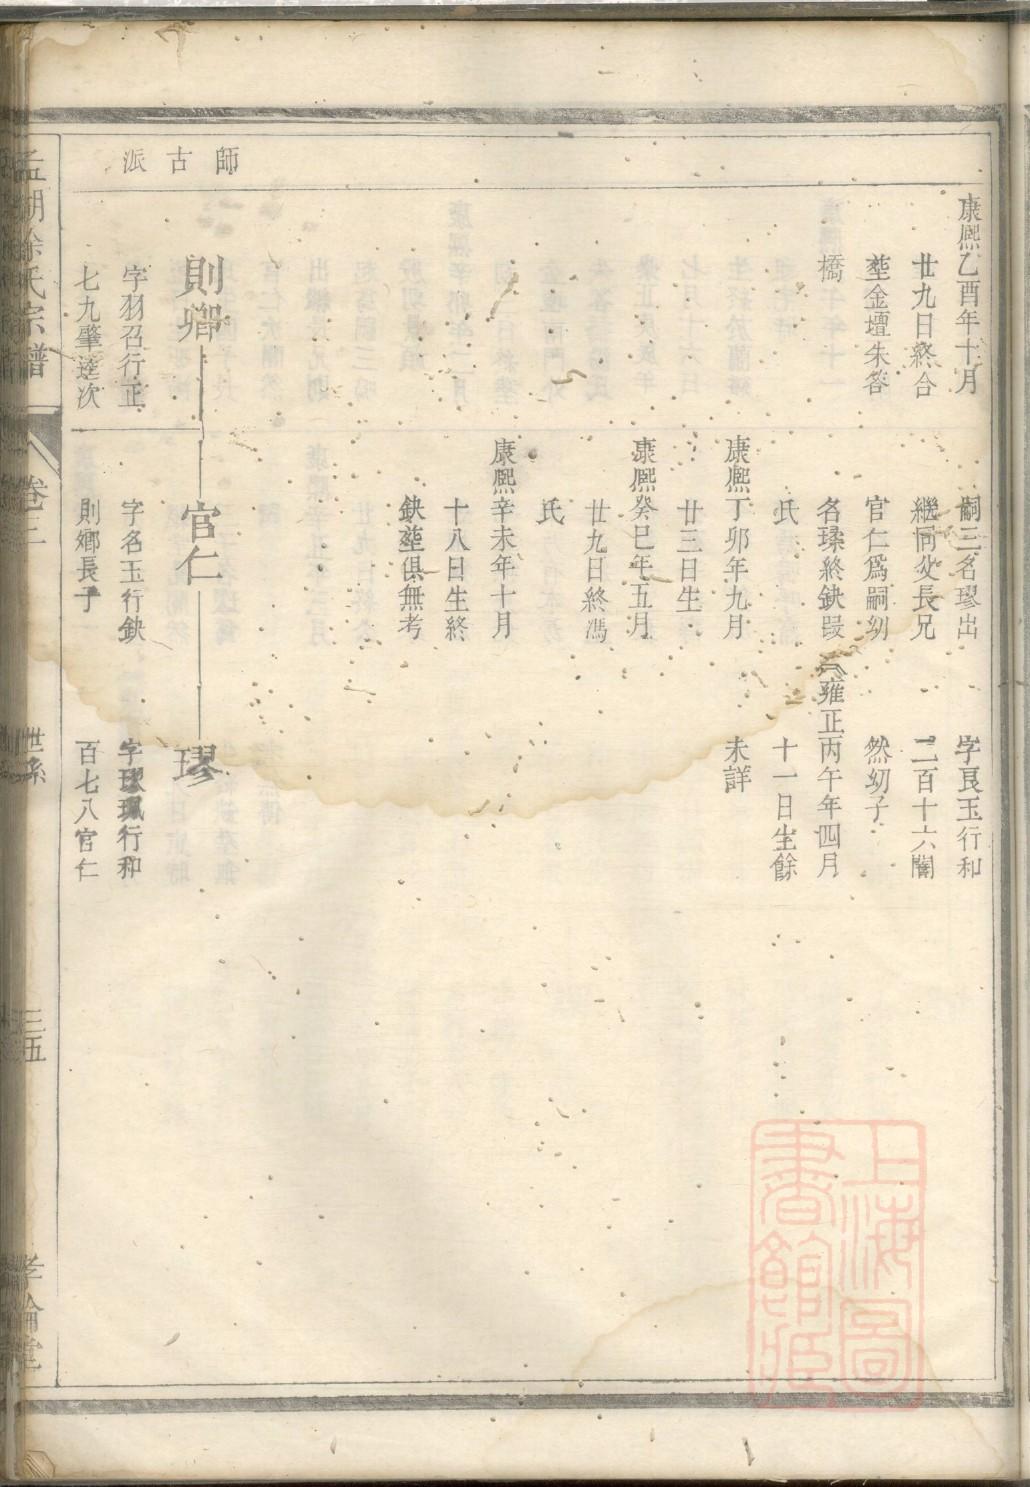 師古派
康熙乙酉年十月
廿九日終合
塟金壇朱笞
橋
嗣三名璆出
繼同父長兄
官仁爲嗣幼
名瑈終鈌叚
氏
康熙丁卯年九月
廿三日生
康熙癸巳年五月
廿九日終馮
氏
康熙辛未年十月
十八日生終
鈌塟俱無考
字艮玉行和
二百十六闇
然幼子
雍正丙午年四月
十一日生餘
未詳
則鄉
字羽召行正
七九肇逵次
官仁
字名玉行鈌
則鄉長子
璆
字璆珮行和
百七八官仁
孟湖徐氏宗譜
卷三
世系
三五
孝倫堂
上海圖書館藏